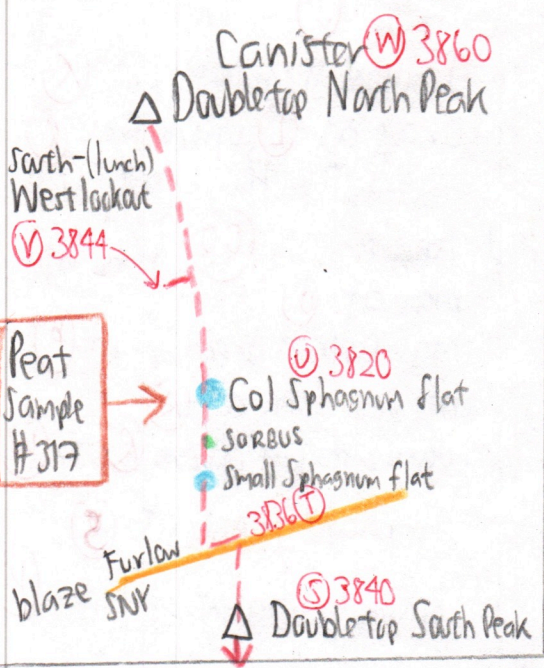 Canister W 3860
Doubletop North Peak
South-(lunch)
West lookout
V 3844
U 3820
Peat
Sample
#317
Col Sphagnum flat
SORBUS
Small Sphagnum flat
3836 T
Furlow
blaze SNY
S 3840
Doubletop South Peak